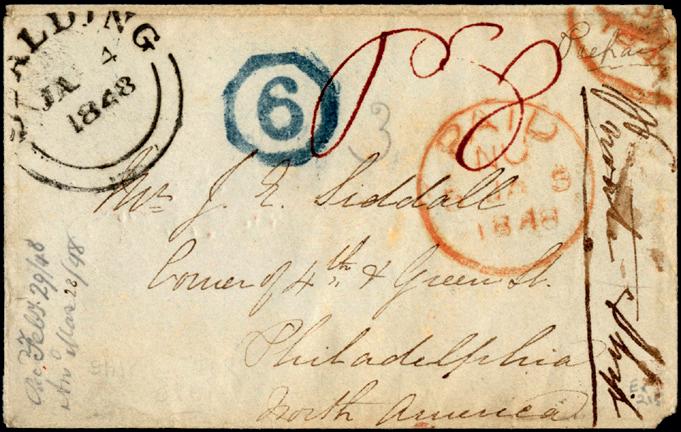 SPALDING
JA 4
1848
6
3
Prepaid
PAID
1848
Mr. J. E. Siddall
Corner of 4th & Green St.
Philadelphia
North America
Feby. 29/48
Mar 28/48